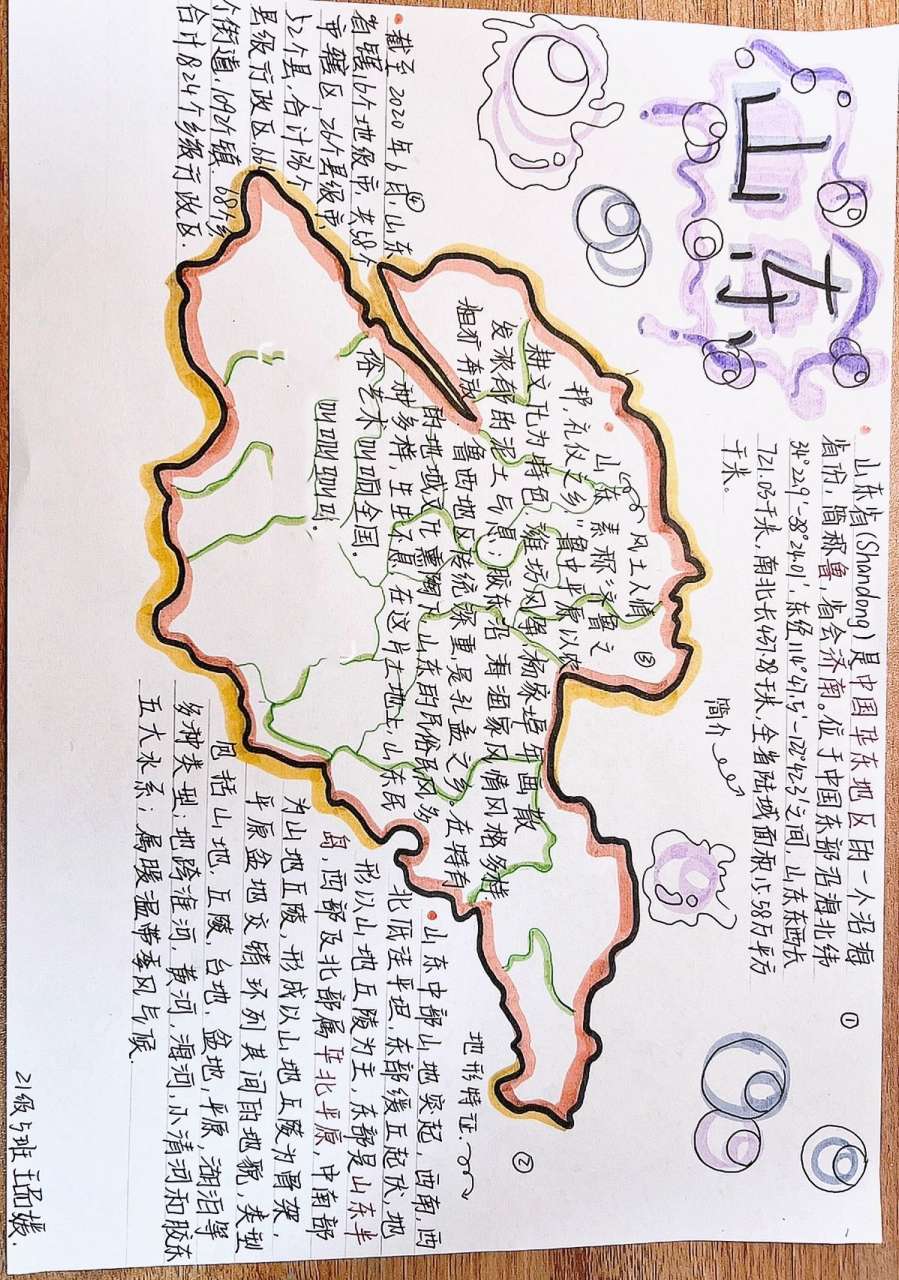 山东
简介
①
山东省(Shandong)是中国华东地区的一个沿海
省份，简称鲁，省会济南。位于中国东部沿海北纬
34°22.9′-38°24.01′，东经114°47.5′-122°42.3′之间，山东东西长
721.03千米，南北长437.28千米，全省陆域面积15.58万平方
千米。
地形特征
②
山东中部山地突起，西南，西
北低洼平坦，东部缓丘起伏，地
形以山地丘陵为主，东部是山东半
岛，西部及北部属华北平原，中南部
为山地丘陵，形成以山地丘陵为骨架，
平原盆地交错环列其间的地貌，类型
包括山地，丘陵，台地，盆地，平原，湖泊等
多种类型；地跨淮河，黄河，海河，小清河和胶东
五大水系；属暖温带季风气候.
风土人情
③
山东素称"齐鲁之
邦，礼仪之乡"鲁中平原以农
耕文化为特色，潍坊风筝，杨家埠年画散
发浓郁的泥土气息；胶东沿海渔家风情风格多样.
粗犷奔放，鲁西地区传统深重，是孔孟之乡，在特有
的地域文化熏陶下，山东的民俗民风多
种多样，生生不息，在这片土地上，山东民
俗艺术叫响全国。
叮叮叮叮
④
截至2020年6月，山东
省辖16个地级市，共58个
市辖区，26个县级市，
52个县，合计136个
县级行政区。66
个街道，1092个镇，68个乡
合计1824个乡级行政区.
21级5班